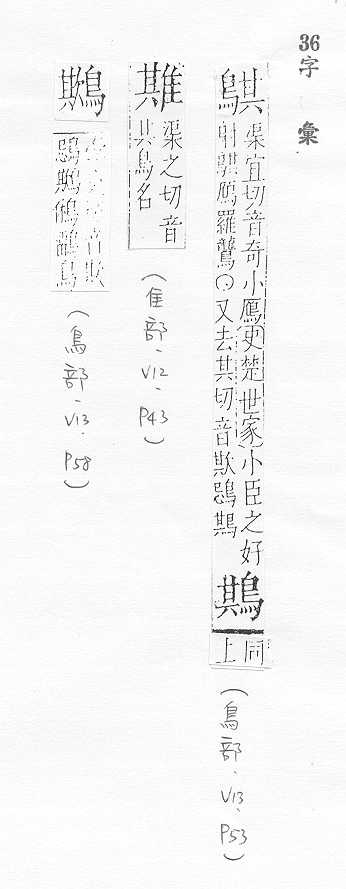 36字 彙
鶀
渠宜切音奇小鴈(史楚世家)小臣之好
射鶀鴈羅鸗○又去其切音欺鵋鶀
鶀
同
上
(鳥部、V13、P53)
渠之切音
其鳥名
(隹部、V12、P43)
音欺
鳥
(鳥部、V13、P58)